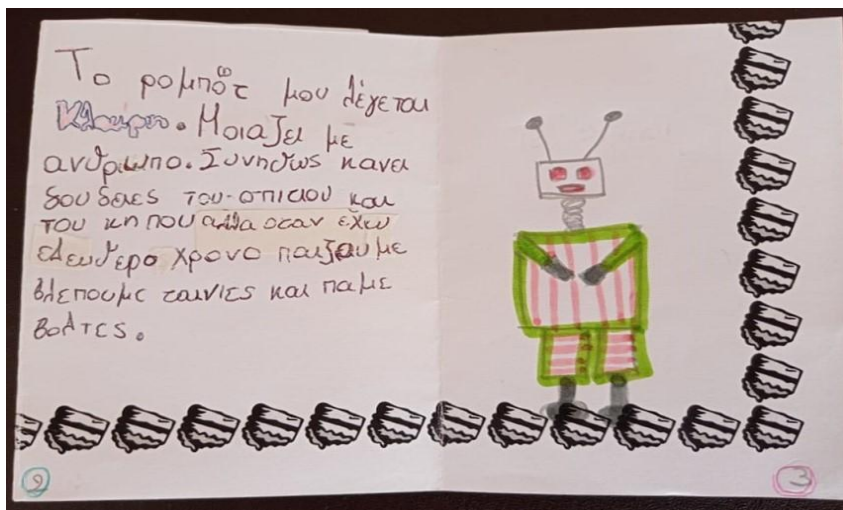 Το ρομπότ μου λέγεται
Κλαίρη. Μοιαζει με
ανθρωπο. Συνηθως κανει
δουλειες του σπιτιου και
του κηπου αλλα οταν εχω
ελευθερο χρονο παιζουμε
βλεπουμε ταινιες και παμε
βολτες.
2
3